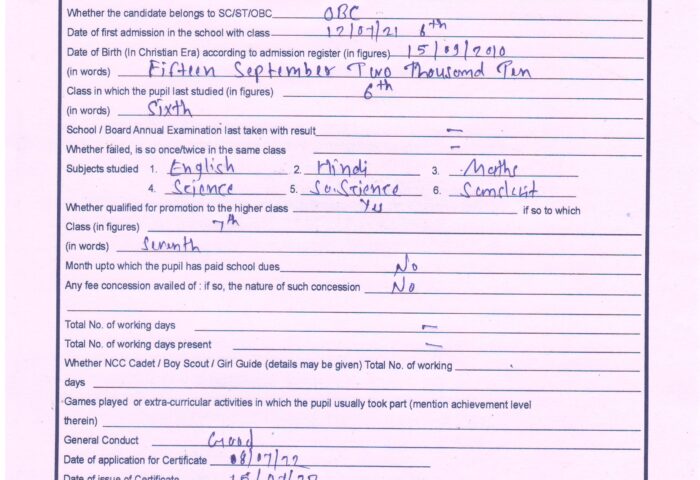 Whether the candidate belongs to SC/ST/OBC OBC
Date of first admission in the school with class 12/07/21 6th
Date of Birth (In Christian Era) according to admission register (in figures) 15/09/2010
(in words) Fifteen September Two Thousand Ten
Class in which the pupil last studied (in figures) 6th
(in words) Sixth
School / Board Annual Examination last taken with result —
Whether failed, is so once/twice in the same class —
Subjects studied 1. English 2. Hindi 3. Maths
4. Science 5. So.Science 6.
Whether qualified for promotion to the higher class Yes if so to which
Class (in figures) 7th
(in words) Seventh
Month upto which the pupil has paid school dues No
Any fee concession availed of : if so, the nature of such concession No
Total No. of working days —
Total No. of working days present —
Whether NCC Cadet / Boy Scout / Girl Guide (details may be given) Total No. of working
days
Games played or extra-curricular activities in which the pupil usually took part (mention achievement level
therein)
General Conduct Good
Date of application for Certificate 08/07/22
Date of issue of Certificate